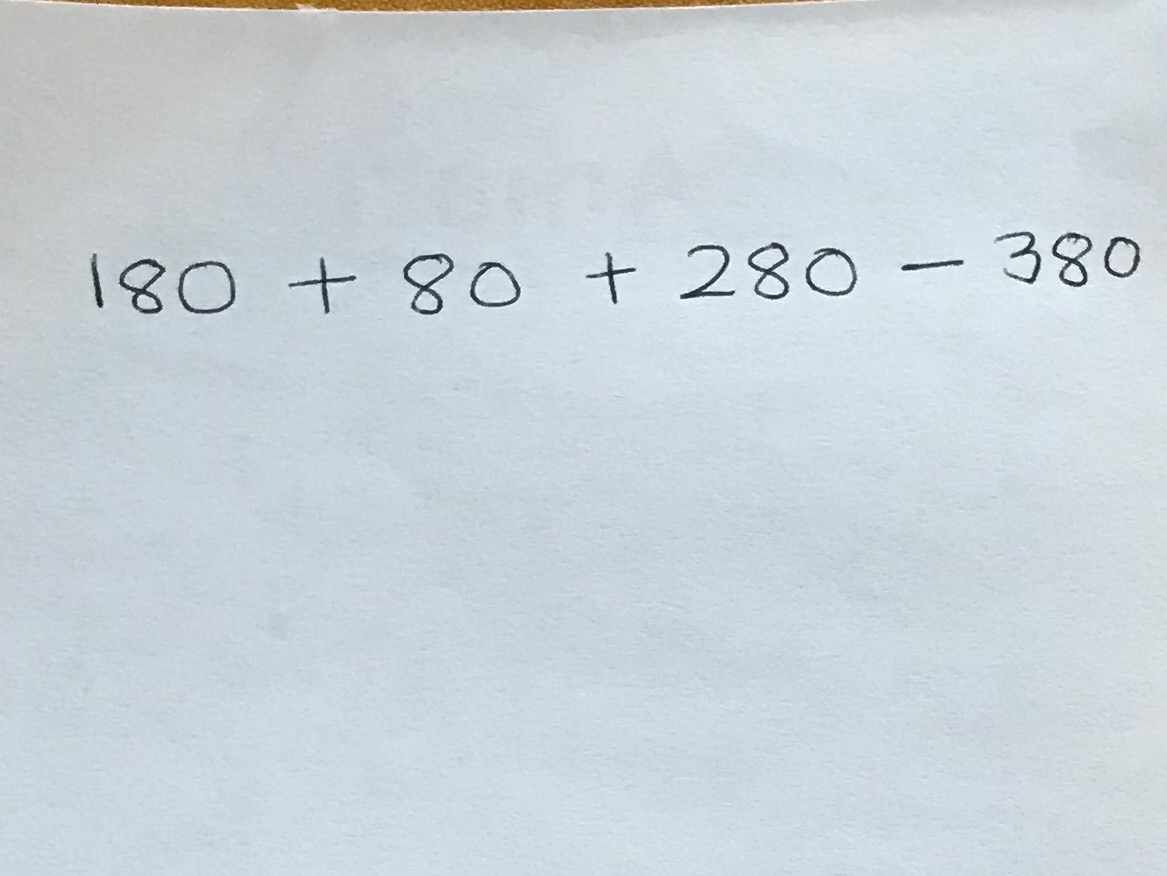 180 + 80 + 280 - 380